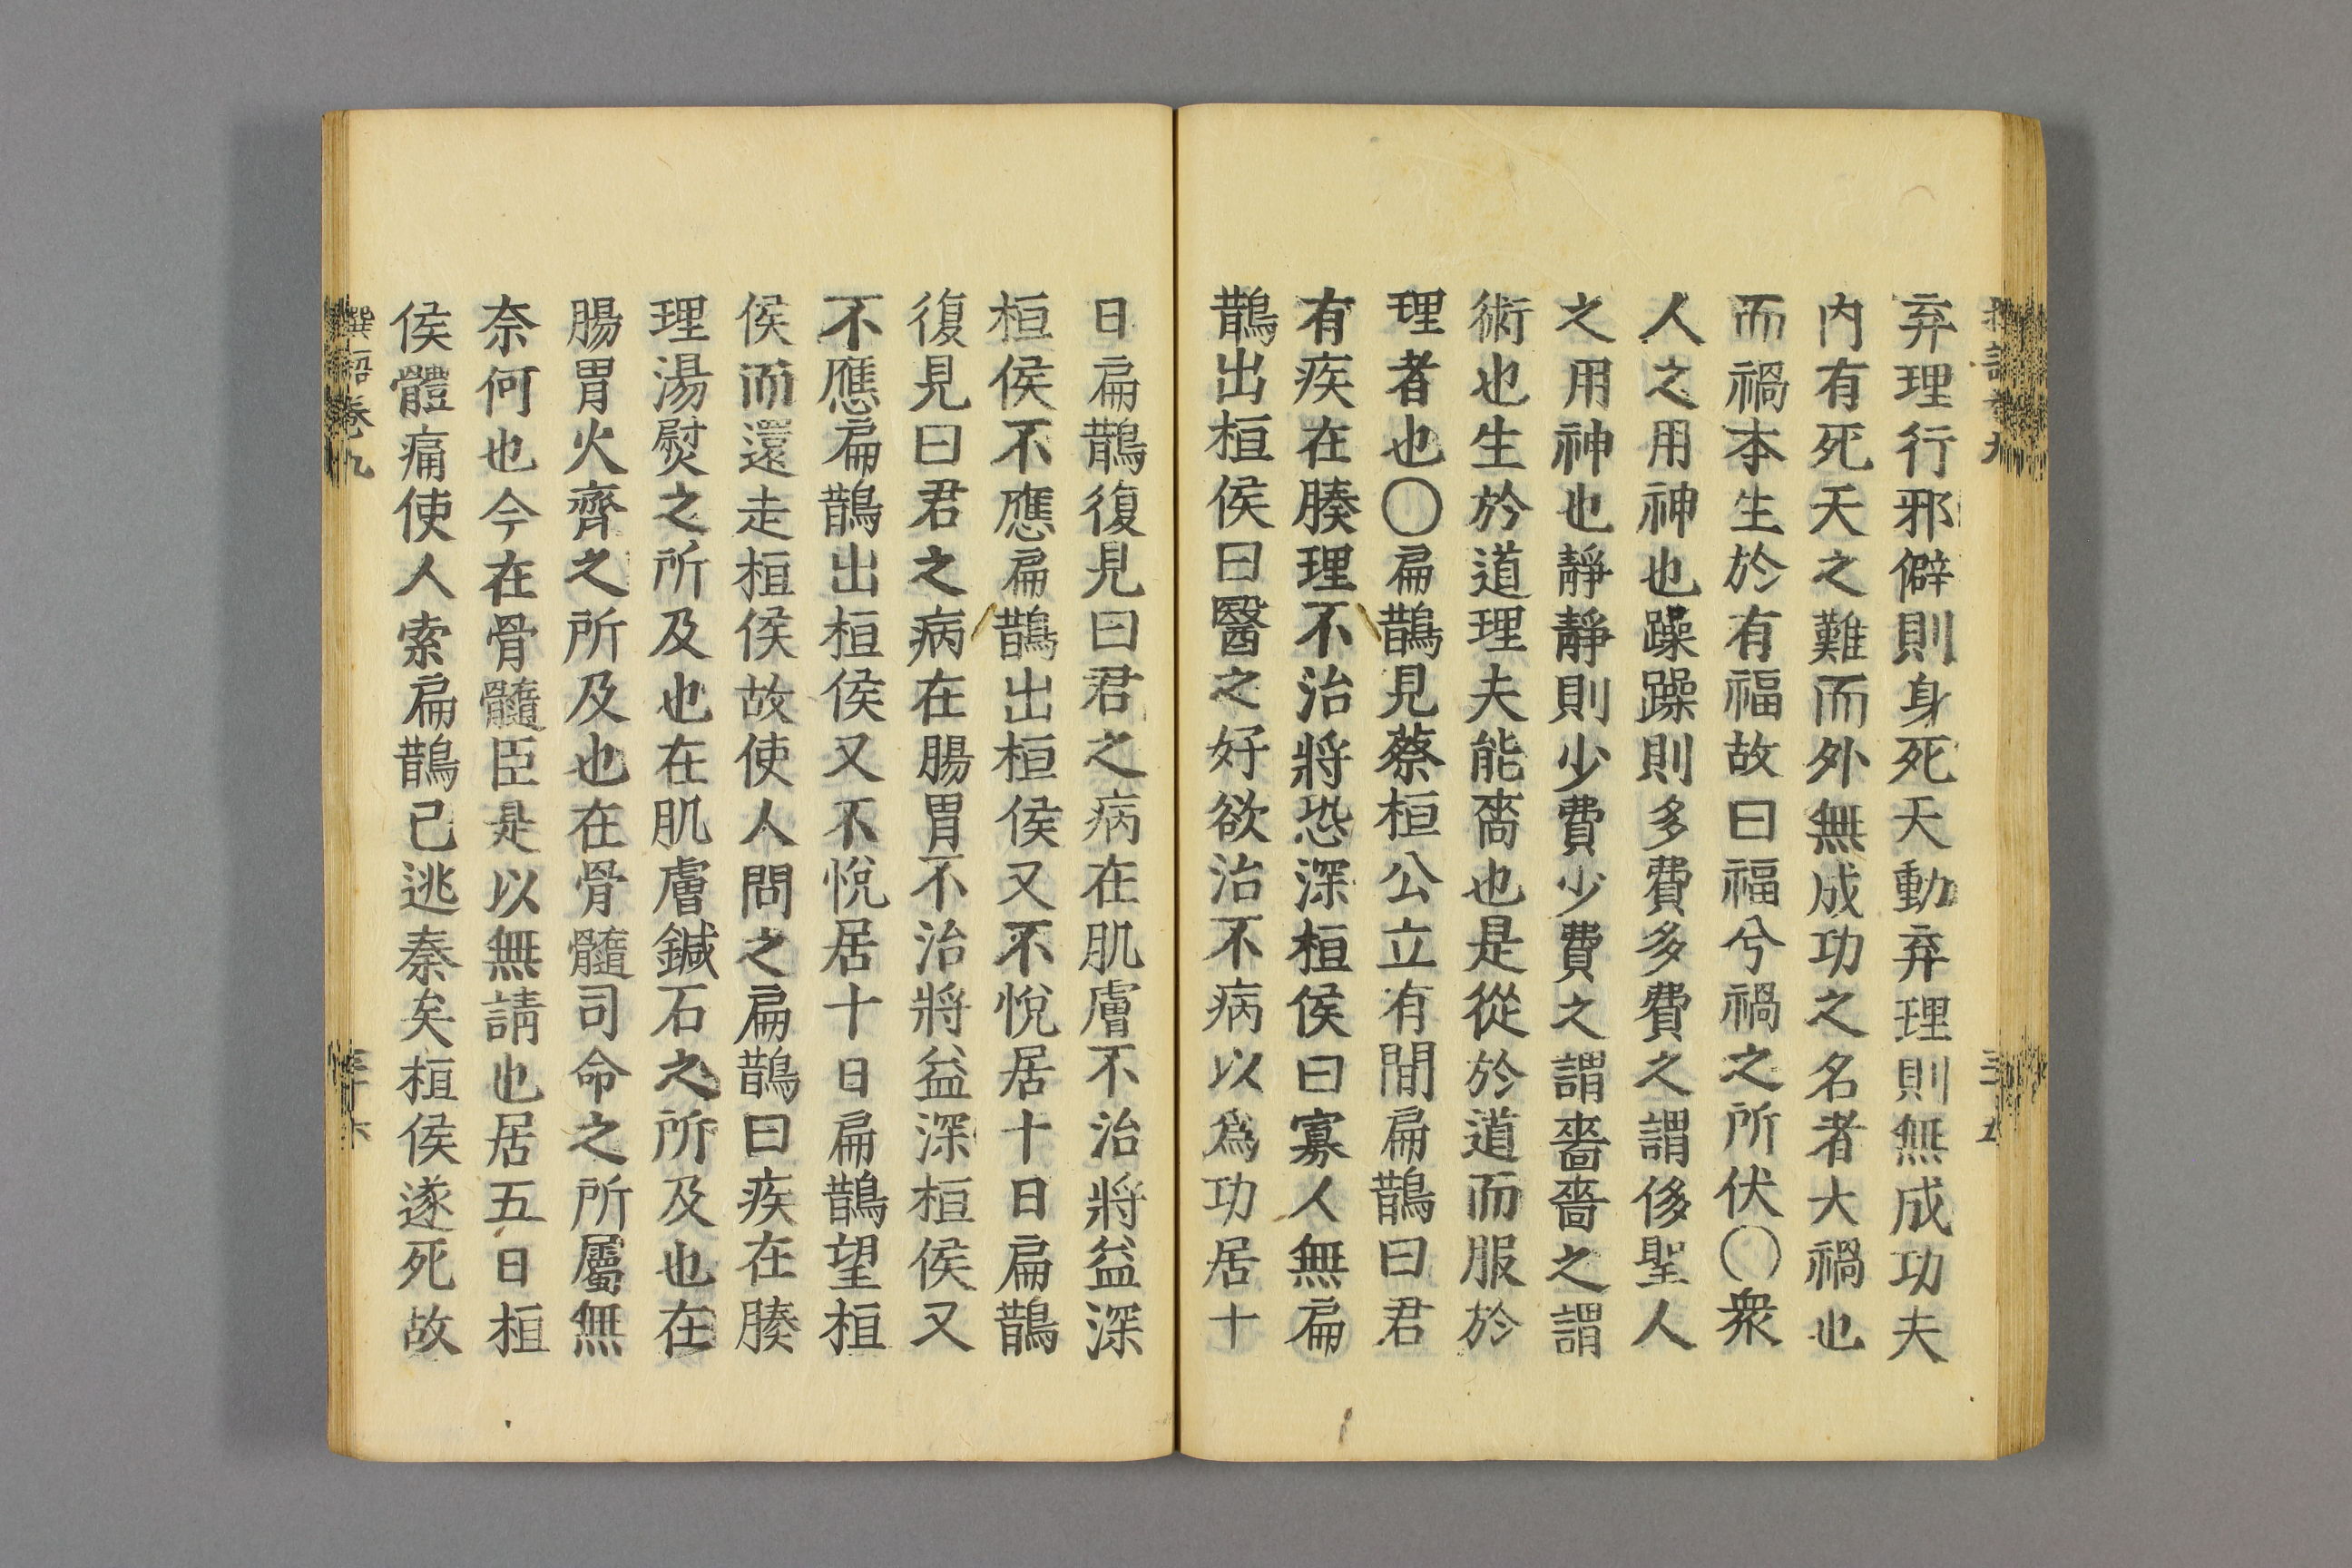 弃理行邪僻則身死夭動弃理則無成功夫
内有死夭之難而外無成功之名者大禍也
而禍本生於有福故曰福兮禍之所伏〇衆
人之用神也躁躁則多費多費之謂侈聖人
之用神也靜靜則少費少費之謂嗇嗇之謂
術也生於道理夫能嗇也是從於道而服於
理者也〇扁鵲見蔡桓公立有間扁鵲曰君
有疾在腠理不治將恐深桓侯曰寡人無扁
鵲出桓侯曰醫之好欲治不病以爲功居十
日扁鵲復見曰君之病在肌膚不治將益深
桓侯不應扁鵲出桓侯又不悅居十日扁鵲
復見曰君之病在腸胃不治將益深桓侯又
不應扁鵲出桓侯又不悅居十日扁鵲望桓
侯而還走桓侯故使人問之扁鵲曰疾在腠
理湯熨之所及也在肌膚鍼石之所及也在
腸胃火齊之所及也在骨髓司命之所屬無
奈何也今在骨髓臣是以無請也居五日桓
侯體痛使人索扁鵲已逃秦矣桓侯遂死故
卷九